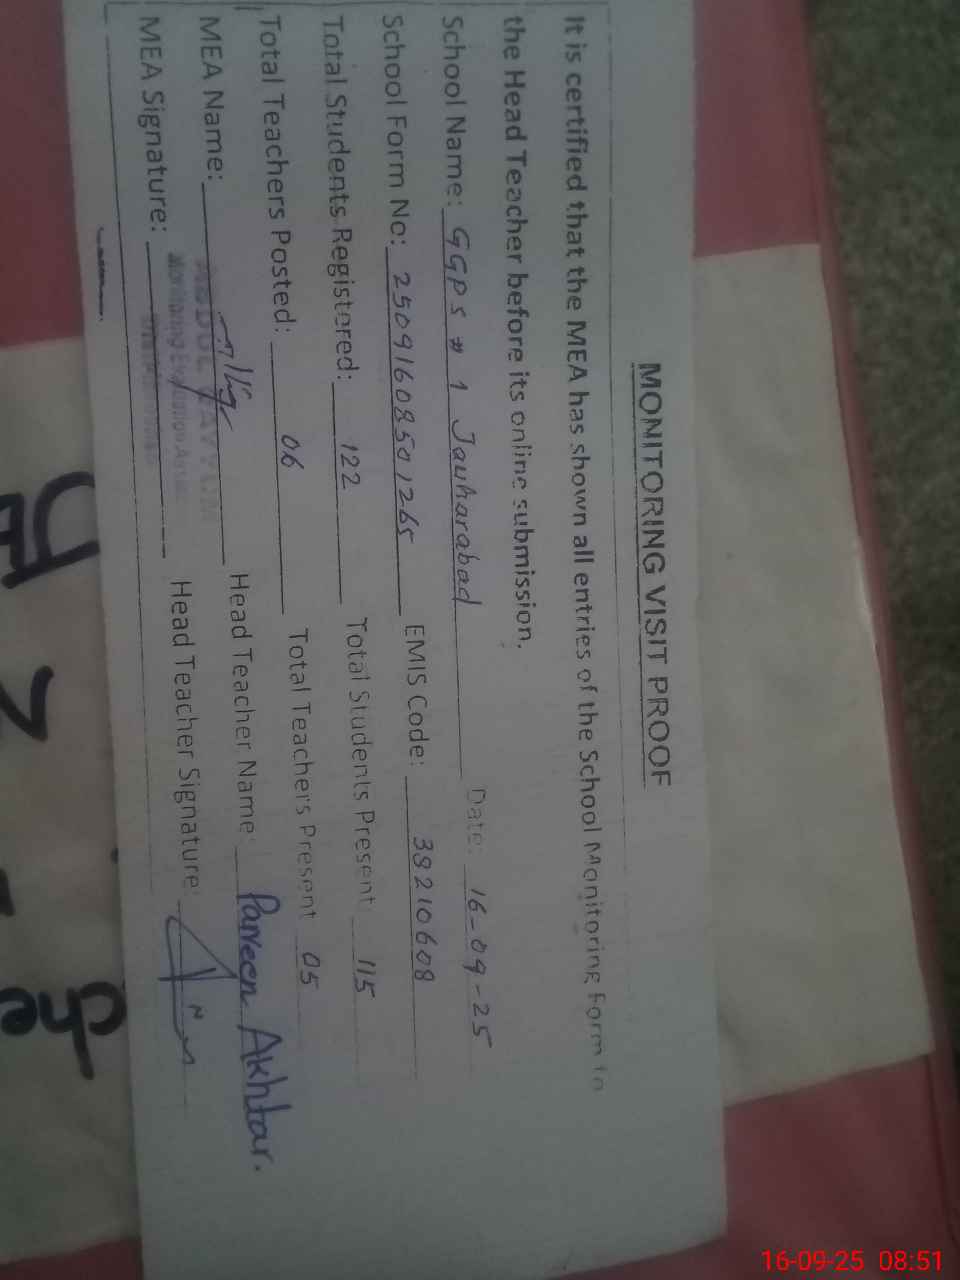 MONITORING VISIT PROOF
It is certified that the MEA has shown all entries of the School Monitoring Form to
the Head Teacher before its online submission.
School Name: GGPS # 1 Jauharabad Date: 16-09-25
School Form No: 25091608501265 EMIS Code: 38210608
Total Students Registered: 122 Total Students Present 115
Total Teachers Posted: 06 Total Teachers Present 05
MEA Name: Head Teacher Name: Parveen Akhtar.
MEA Signature: Head Teacher Signature:
Monitoring Evaluation
che
16-09-25 08:51